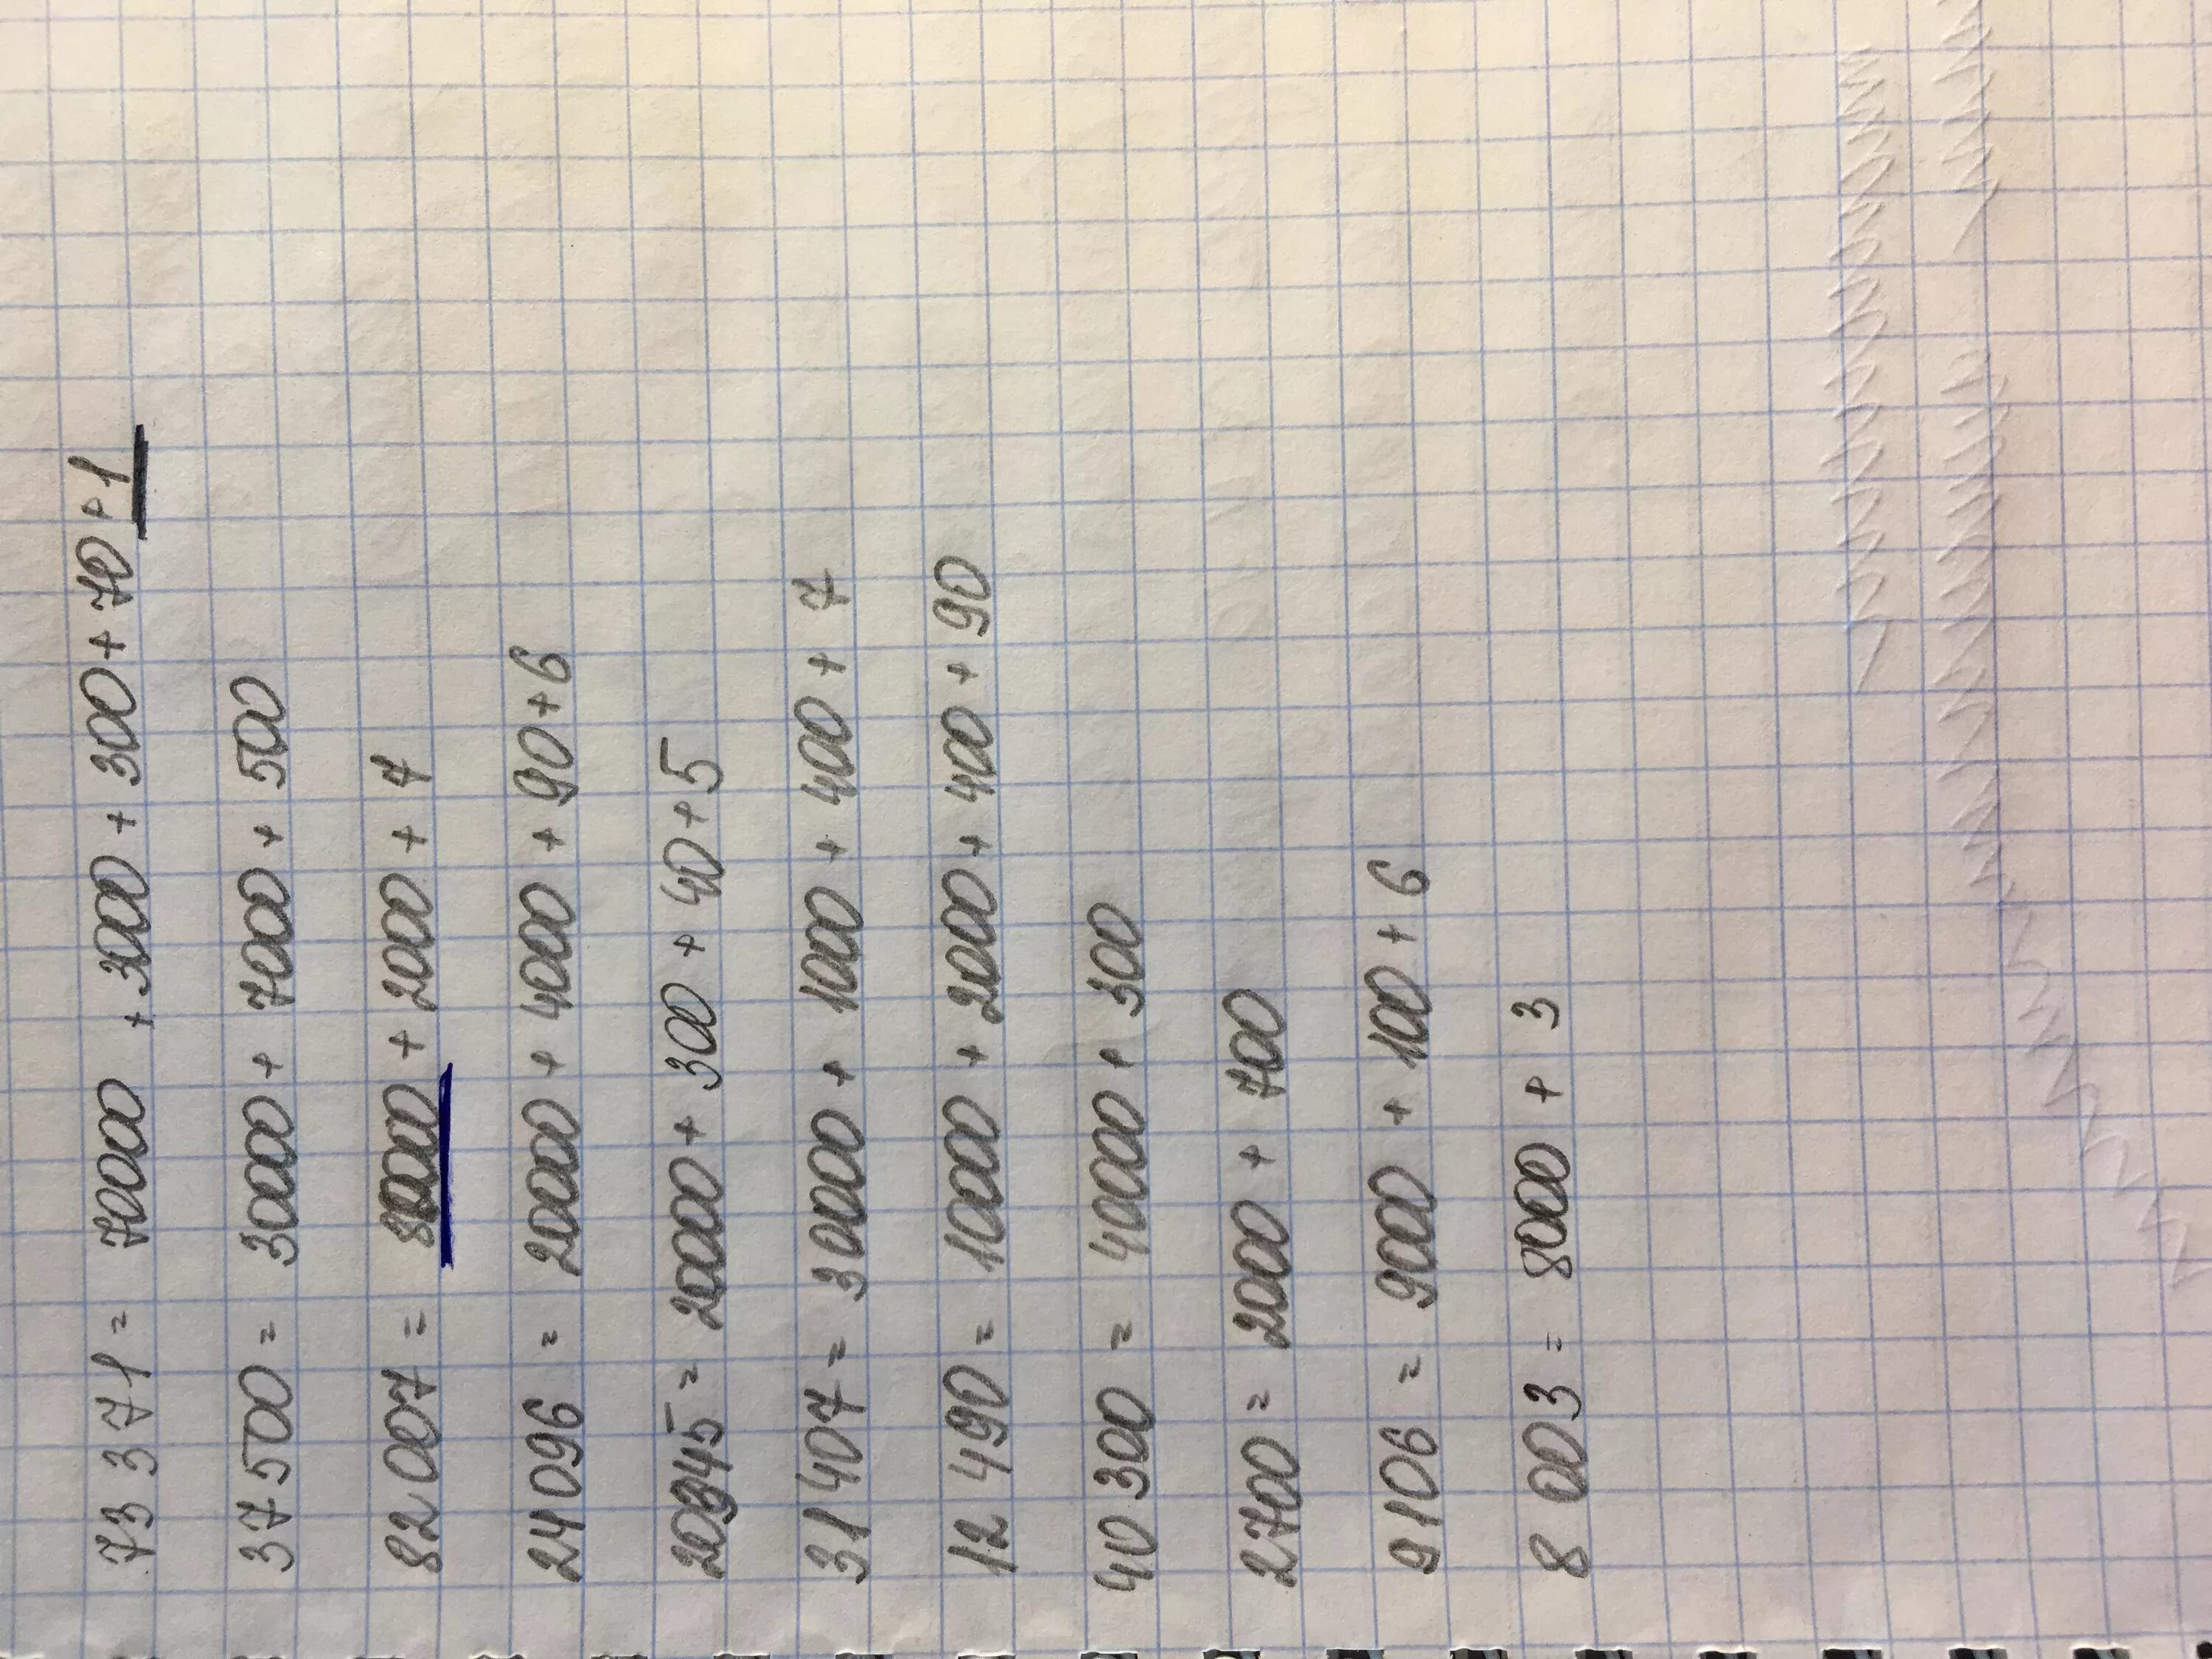 73 371 = 70000 + 3000 + 300 + 70 + 1
37 500 = 30000 + 7000 + 500
82 007 = 80000 + 2000 + 7
24 096 = 20000 + 4000 + 90 + 6
20345 = 20000 + 300 + 40 + 5
31 407 = 30000 + 1000 + 400 + 7
12 490 = 10000 + 2000 + 400 + 90
40 300 = 40000 + 300
2700 = 2000 + 700
9106 = 9000 + 100 + 6
8 003 = 8000 + 3